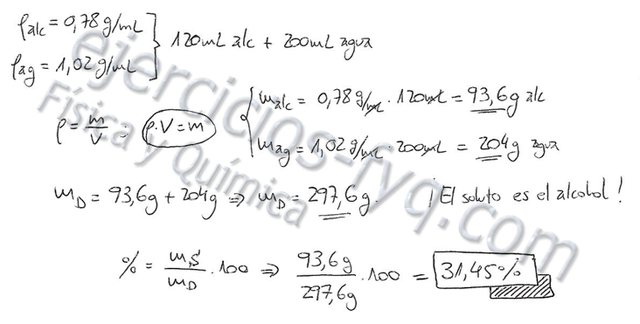 ρalc = 0,78 g/mL
ρag = 1,02 g/mL } 120 mL alc + 200 mL agua
ρ = m/V ; ρ·V = m { malc = 0,78 g/mL · 120 mL = 93,6 g alc
mag = 1,02 g/mL · 200 mL = 204 g agua
mD = 93,6 g + 204 g ⇒ mD = 297,6 g. ¡El soluto es el alcohol!
% = mS/mD · 100 ⇒ 93,6 g/297,6 g · 100 = 31,45%
ejercicios-fyq.com
Física y Química